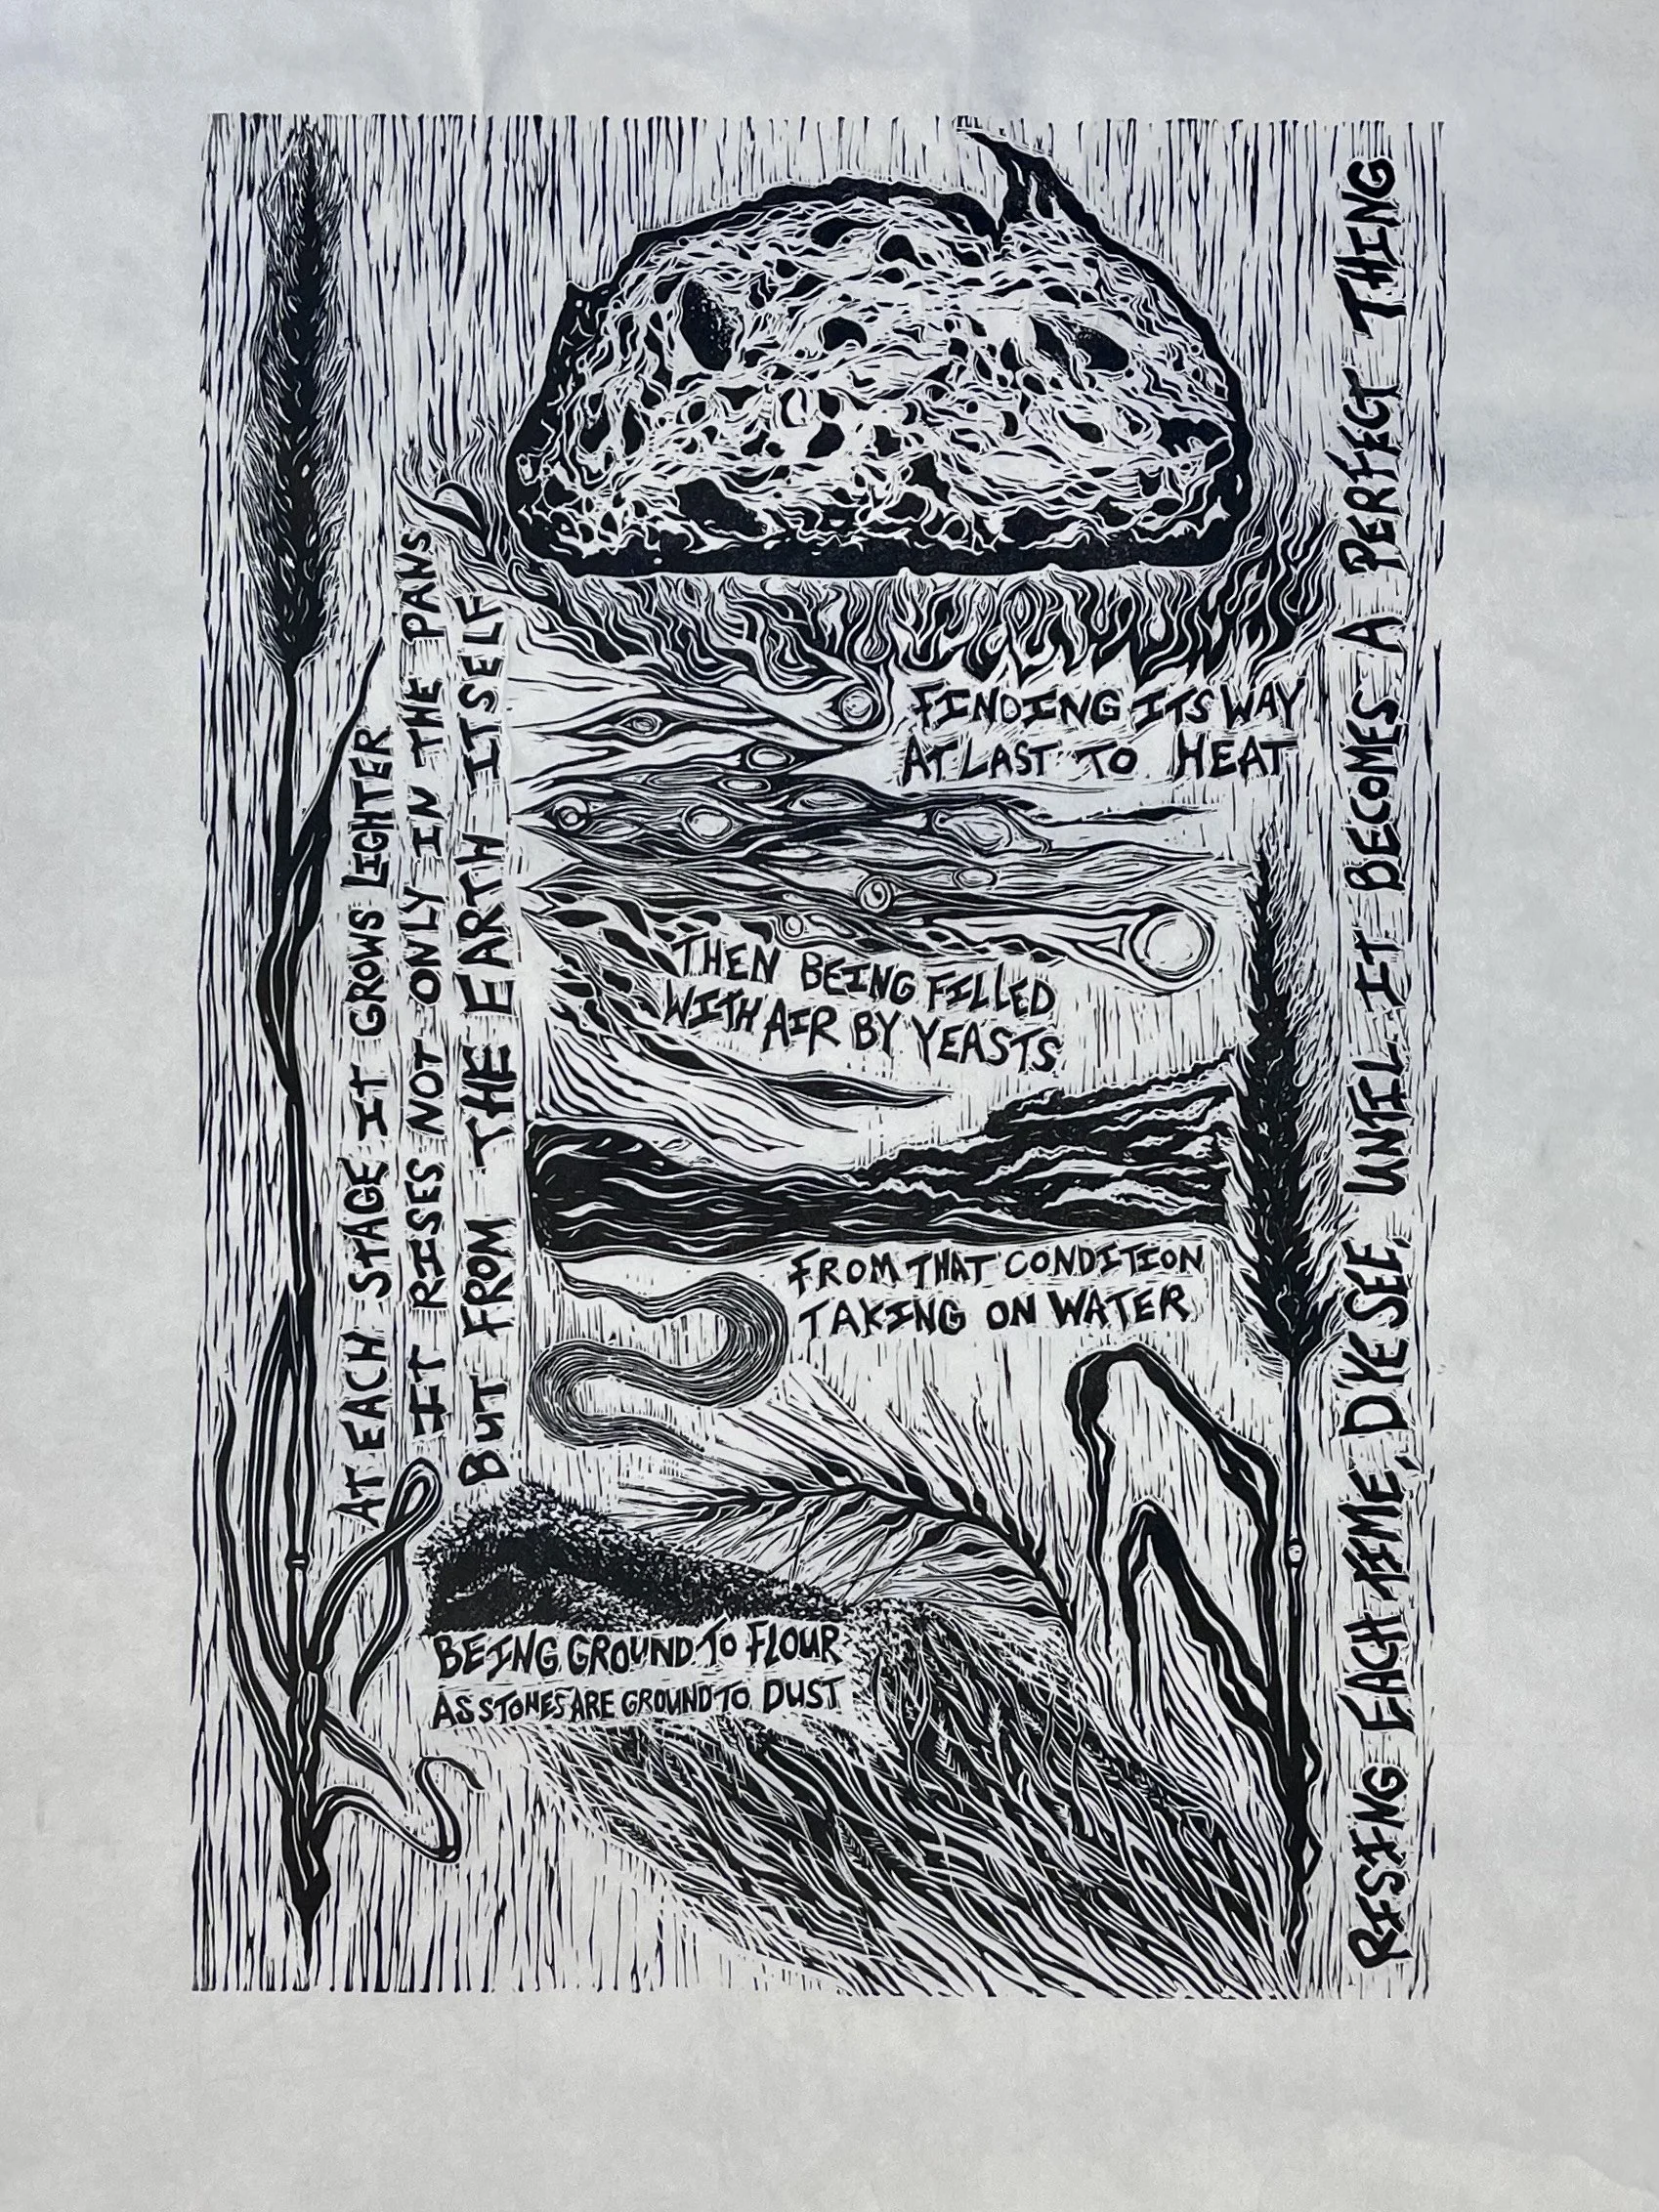 BEING GROUND TO FLOUR
AS STONES ARE GROUND TO DUST
FROM THAT CONDITION
TAKING ON WATER
THEN BEING FILLED
WITH AIR BY YEASTS
FINDING ITS WAY
AT LAST TO HEAT
AT EACH STAGE IT GROWS LIGHTER
IT RISES NOT ONLY IN THE PANS
BUT FROM THE EARTH ITSELF
RISING EACH TIME, D'YE SEE, UNTIL IT BECOMES A PERFECT THING